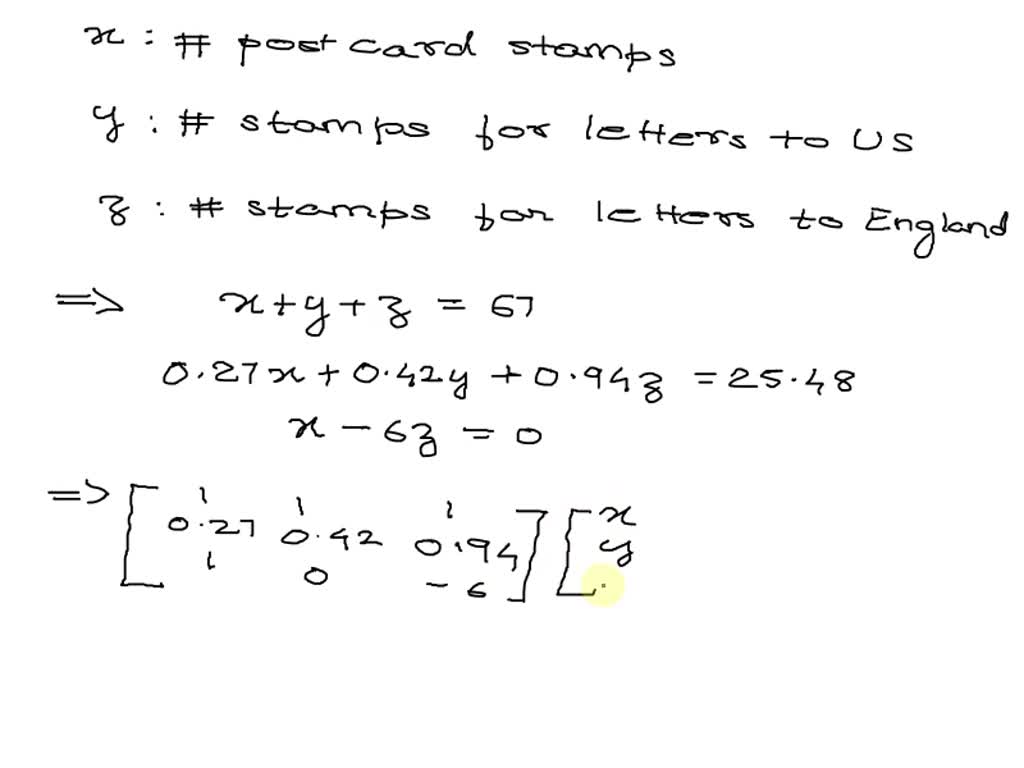 x : # post card stamps
y : # stamps for letters to US
z : # stamps for letters to England
=> x + y + z = 67
0.27x + 0.42y + 0.94z = 25.48
x - 6z = 0
=> [ 1 1 1 [ x
0.27 0.42 0.94 ] y
1 0 -6